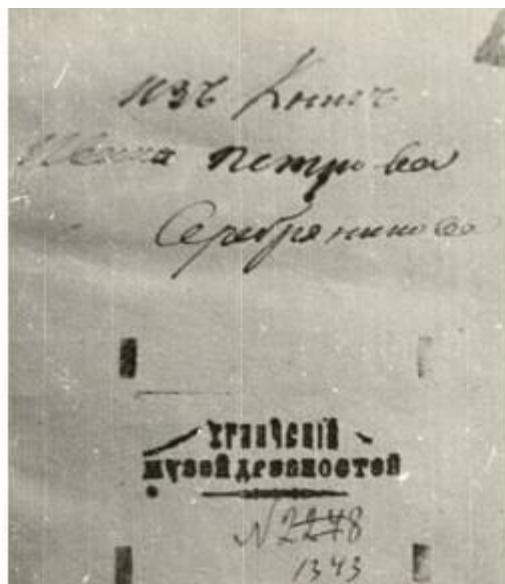 изъ Книгъ
Ивана Петрова
Серебреникова
УГЛИЧСКІЙ
МУЗЕЙ ДРЕВНОСТЕЙ
№ 2278
1343